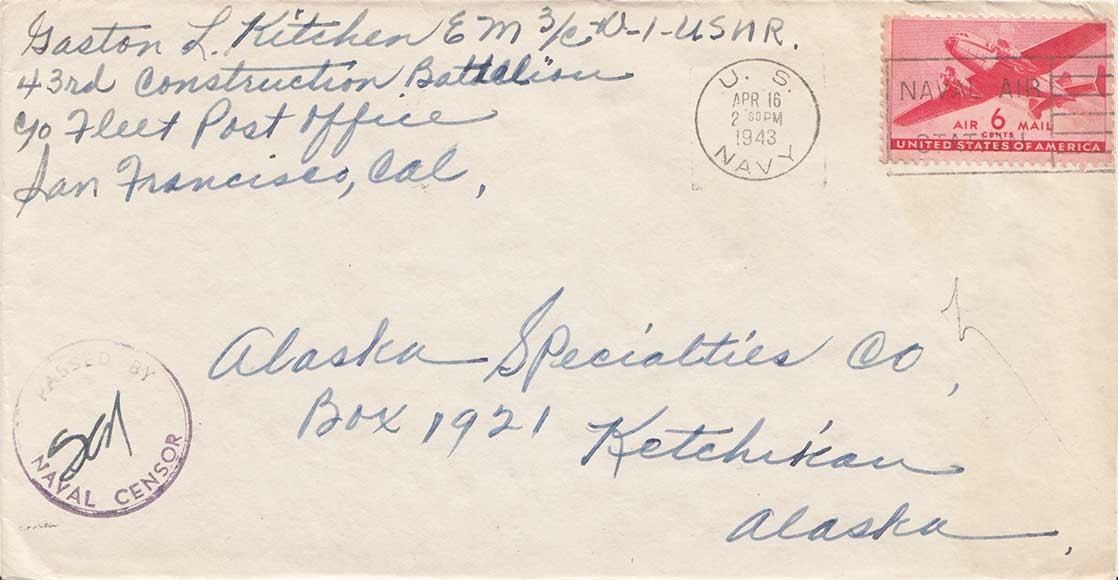 Gaston L. Kitchen EM 3/c-V-1-USNR.
43rd Construction Battalion
c/o Fleet Post Office
San Francisco, Cal,
U. S.
APR 16
2 30 PM
1943
NAVY
NAVAL AIR
STATION
AIR 6 MAIL
CENTS
UNITED STATES OF AMERICA
Alaska Specialties Co,
Box 1921
Ketchikan
Alaska,
PASSED BY
NAVAL CENSOR